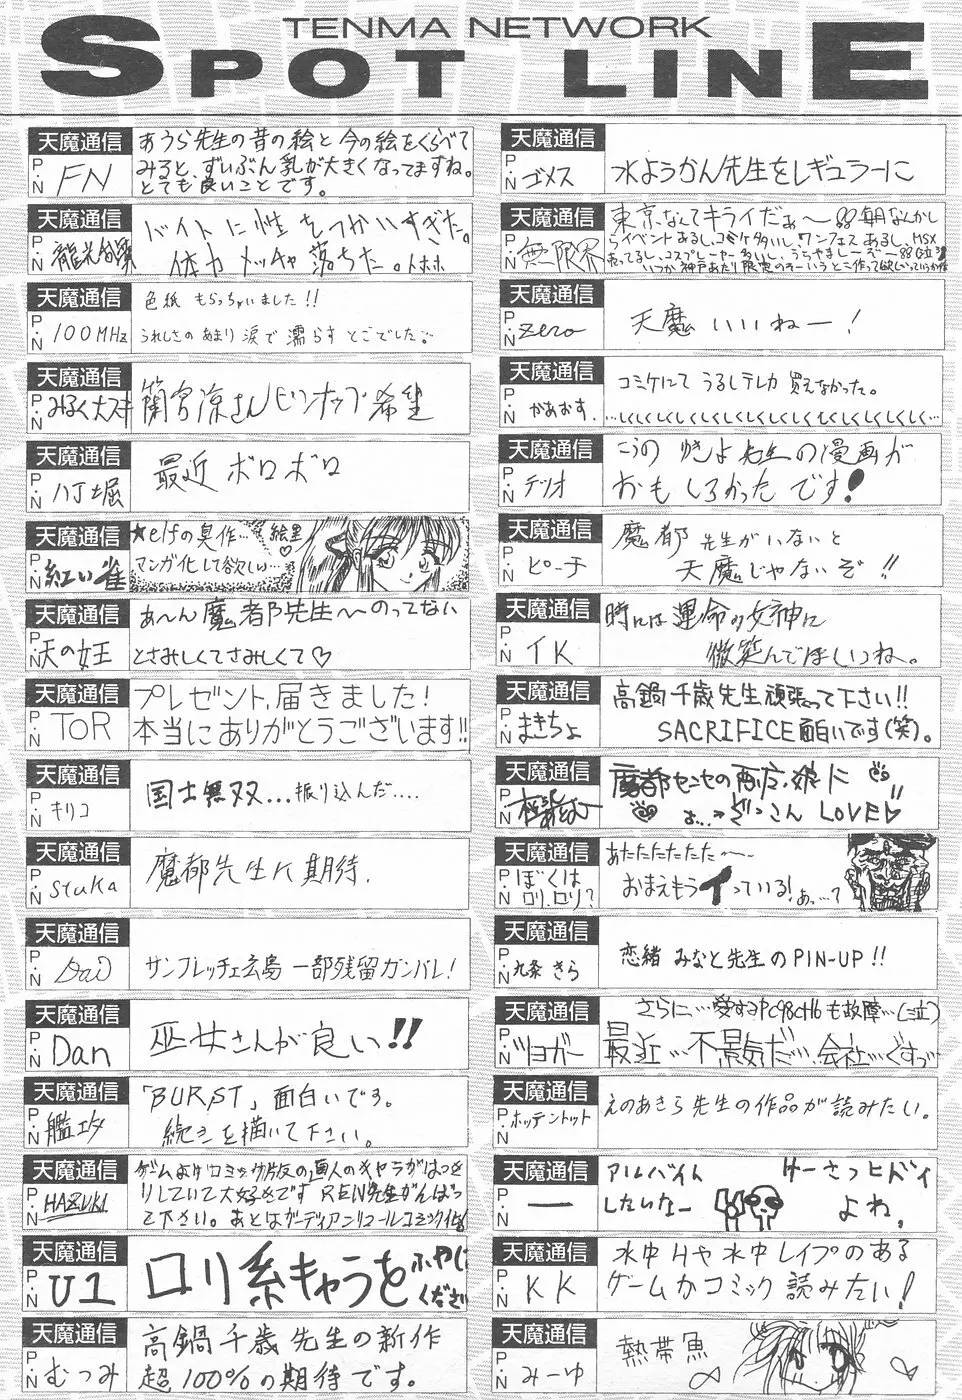 TENMA NETWORK
SPOT LINE
天魔通信
P.N FN
あうら先生の昔の絵と今の絵をくらべて
みると、ずいぶん乳が大きくなってますね。
とても良いことです。
天魔通信
P.N
バイトに性をつかいすぎた。
体力メッチャ落ちた。トホホ
天魔通信
P.N 100MHz
色紙もらっちゃいました!!
うれしさのあまり涙で濡らすとこでした
天魔通信
P.N みるく大スキ
蘭宮涼さんピンナップ希望
天魔通信
P.N 八丁堀
最近ボロボロ
天魔通信
P.N 紅い雀
★elfの臭作… 絵里♡
マンガ化して欲しい…
天魔通信
P.N 天の女王
あ〜ん魔都先生〜〜のってない
とさみしくてさみしくて♡
天魔通信
P.N TOR
プレゼント、届きました!
本当にありがとうございます!!
天魔通信
P.N キリコ
国士無双...振り込んだ....
天魔通信
P.N stuka
魔都先生に期待.
天魔通信
P.N
サンフレッチェ広島 一部残留ガンバレ!
天魔通信
P.N Dan
巫女さんが良い!!
天魔通信
P.N
「BURST」面白いです。
続きを描いて下さい。
天魔通信
P.N HAZUKI
ゲームよりコミック版の直人のキャラがはっき
りしていて大好きです REN先生がんばっ
て下さい。あとはガーディアンリコールコミック化
天魔通信
P.N U1
ロリ系キャラをふやして
ください
天魔通信
P.N むつみ
高鍋千歳先生の新作
超100%の期待です。
天魔通信
P.N ゴメス
水ようかん先生をレギュラーに
天魔通信
P.N 無限界
東京なんてキライだぁ〜 毎月なんかし
らイベントあるし、コミケ多いし、ワンフェスあるし、MSX
売ってるし、コスプレーヤー多いし、うらやましーぞー
いつか神戸あたり限定のそーいうとこ作って欲しい
天魔通信
P.N zero
天魔いいねー!
天魔通信
P.N かあおす.
コミケにてうるしテレカ買えなかった。
…しくしくしくしくしくしくしくしくしくしくしくしく…
天魔通信
P.N デリオ
こうのゆきよ先生の漫画が
おもしろかったです!
天魔通信
P.N ピーチ
魔都先生がいないと
天魔じゃないぞ!!
天魔通信
P.N IK
時には運命の女神に
微笑んでほしいね。
天魔通信
P.N まきちょ
高鍋千歳先生頑張って下さい!!
SACRIFICE面白いです(笑)。
天魔通信
P.N
魔都センセの
LOVE♡
天魔通信
P.N ぼくはロリ.ロリ?
あたたたたたた〜〜
おまえもうイっている! あっ…て
天魔通信
P.N 九条きら
恋緒みなと先生のPIN-UP!!
天魔通信
P.N ツヨガー
さらに…愛するPC98CH6も故障…(泣)
最近…不景気だ…会社…ぐすっ
天魔通信
P.N ホッテントット
えのあきら先生の作品が読みたい。
天魔通信
P.N 一
アルバイト
したいなー
けーさつヒドイ
よね。
天魔通信
P.N KK
水中Hや水中レイプのある
ゲームかコミック読みたい!
天魔通信
P.N みーゆ
熱帯魚